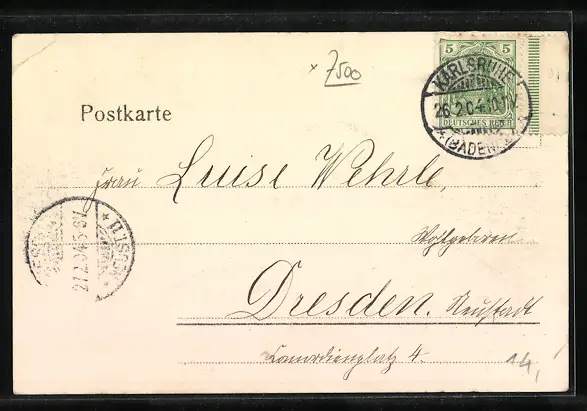 7500
5 5
DEUTSCHES REICH
KARLSRUHE
26.2.04.10-11V.
(BADEN)
Postkarte
Frau Luise Wehrle,
Wohlgeboren
27.2.04.5-6V.
Dresden. Neustadt
14,